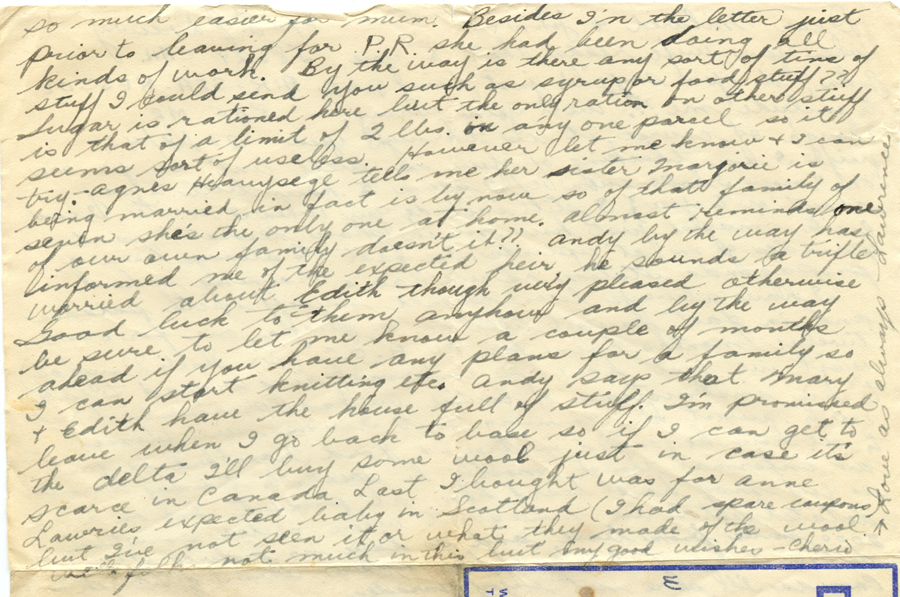 so much easier for mum. Besides I'n the letter just
prior to leaving for P.R. she had been doing all
kinds of work. By the way is there any sort of tins of
stuff I could send you such as syrup or food stuff??
Sugar is rationed here but the only ration on other stuff
is that of a limit of 2 lbs. on any one parcel so it
seems sort of useless. However let me know & I can
try. - Agnes tells me her sister Marjorie is
being married in fact is by now so of that family of
seven she's the only one at home. almost reminds one
of our own family doesn't it?? Andy by the way has
informed me of the expected heir, he sounds a trifle
worried about Edith though very pleased otherwise
Good luck to them anyhow and by the way
be sure to let me know a couple of months
ahead if you have any plans for a family so
I can start knitting etc. Andy says that Mary
& Edith have the house full of stuff. I'm promised
leave when I go back to base so if I can get to
the delta I'll buy some wool just in case it's
scarce in Canada. Last I bought was for Anne
Lawries expected baby in Scotland (I had spare coupons)
but I've not seen it or what they made of the wool.
Well folks not much in this but my good wishes - Cherio
→ Love as always - Lawrence